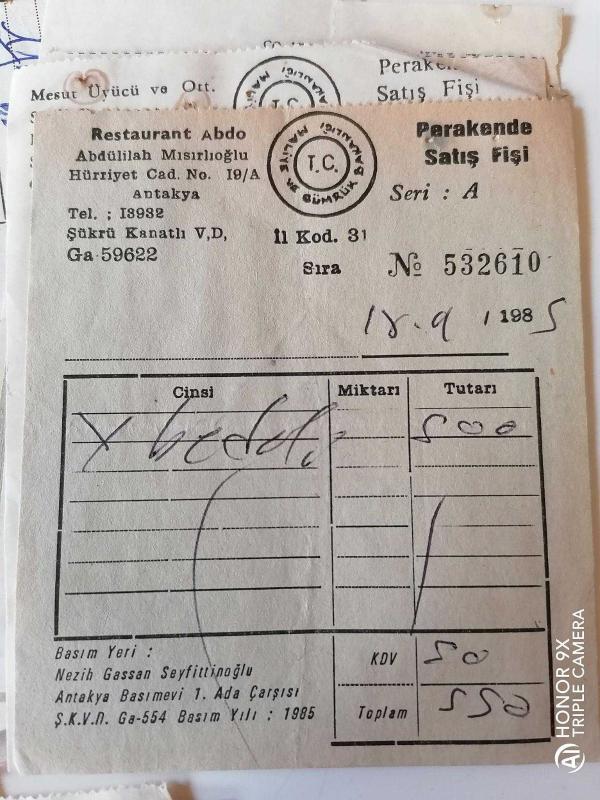 Mesut Üyücü ve Ort.
Peraken
Satış Fişi
Restaurant Abdo
Abdülilah Mısırlıoğlu
Hürriyet Cad. No. I9/A
Antakya
Tel. ; I3932
Şükrü Kanatlı V,D,
Ga 59622
MALİYE VE GÜMRÜK BAKANLIĞI
T.C.
İl Kod. 31
Sıra
Perakende
Satış Fişi
Seri : A
№ 532610
18.9 / 1985
Cinsi Miktarı Tutarı
Y bedeli 500
KDV 50
Toplam 550
Basım Yeri :
Nezih Gassan Seyfittinoğlu
Antakya Basımevi 1. Ada Çarşısı
Ş.K.V.D. Ga-554 Basım Yılı : 1985
HONOR 9X
TRIPLE CAMERA